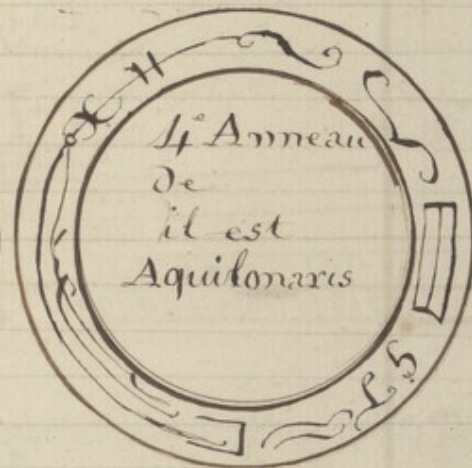 4e Anneau
De
il est
Aquilonaris